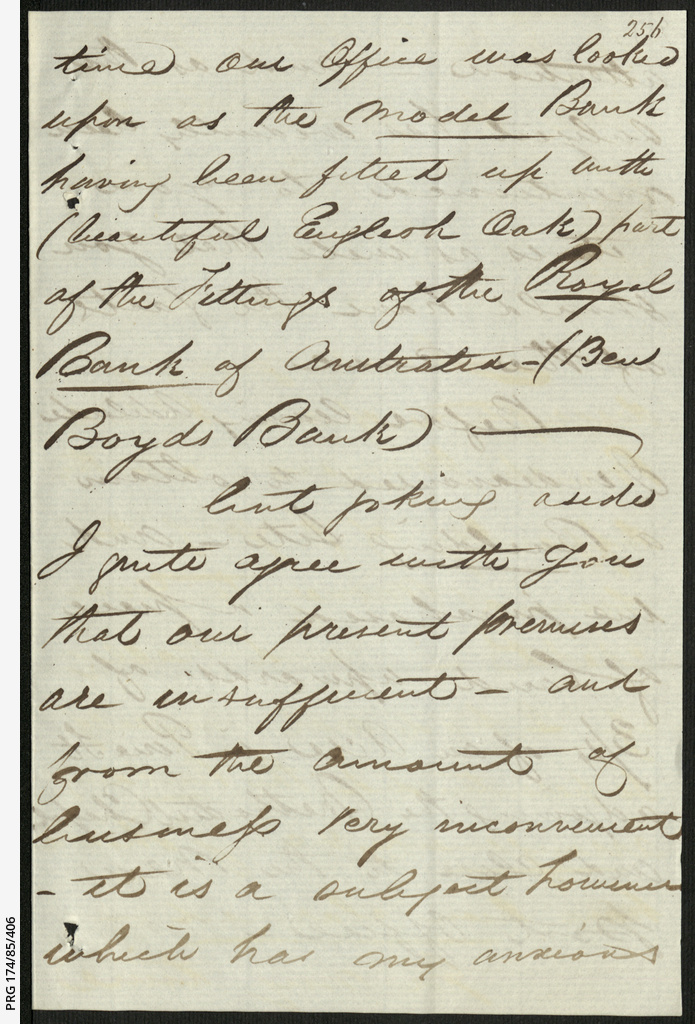 256
time our Office was looked
upon as the Model Bank
having been fitted up with
(beautiful English Oak) part
of the Fittings of the Royal
Bank of Australia - (Ben
Boyds Bank) —
but joking aside
I quite agree with You
that our present premises
are insufficient - and
from the amount of
business very inconvenient
- it is a subject however
which has my anxious
PRG 174/85/406